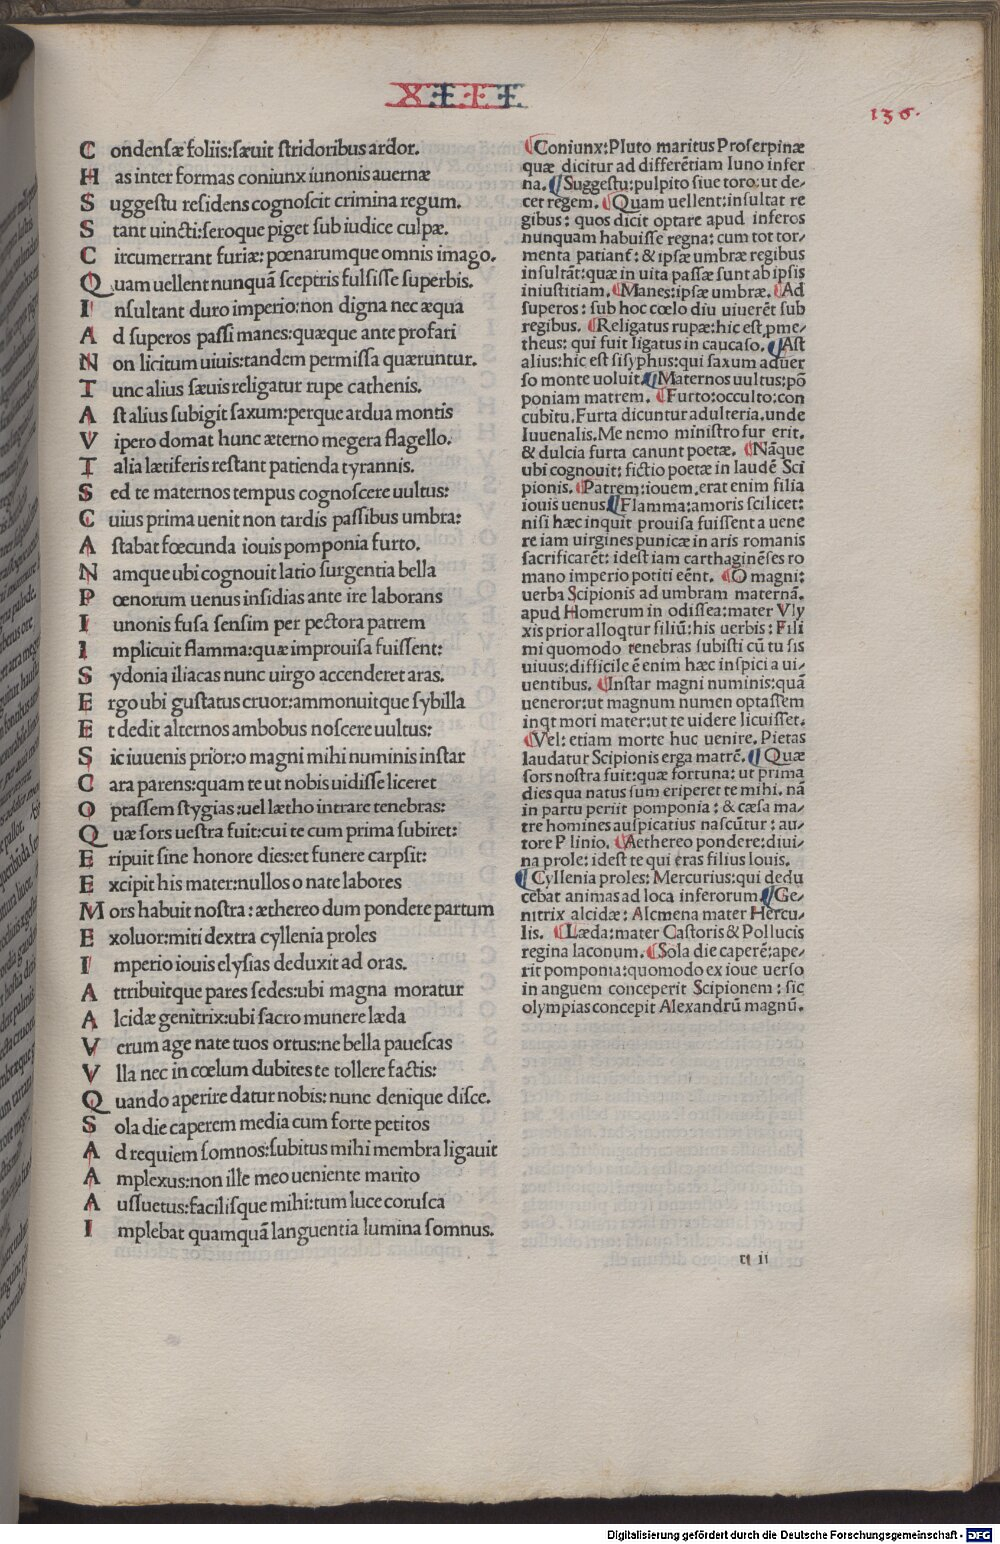 XIII
136.
C ondensæ foliis:sæuit stridoribus ardor.
H as inter formas coniunx iunonis auernæ
S uggestu residens cognoscit crimina regum.
S tant uincti:seroque piget sub iudice culpæ.
C ircumerrant furiæ:pœnarumque omnis imago.
Q uam uellent nunquã sceptris fulsisse superbis.
I nsultant duro imperio:non digna nec æqua
A d superos passi manes:quæque ante profari
N on licitum uiuis:tandem permissa quæruntur.
T unc alius sæuis religatur rupe cathenis.
A st alius subigit saxum:perque ardua montis
V ipero domat hunc æterno megera flagello.
T alia lætiferis restant patienda tyrannis.
S ed te maternos tempus cognoscere uultus:
C uius prima uenit non tardis passibus umbra:
A stabat fœcunda iouis pomponia furto.
N amque ubi cognouit latio surgentia bella
P œnorum uenus insidias ante ire laborans
I unonis fusa sensim per pectora patrem
I mplicuit flamma:quæ improuisa fuissent:
S ydonia iliacas nunc uirgo accenderet aras.
E rgo ubi gustatus cruor:ammonuitque sybilla
E t dedit alternos ambobus noscere uultus:
S ic iuuenis prior:o magni mihi numinis instar
C ara parens:quam te ut nobis uidisse liceret
O ptassem stygias:uel lætho intrare tenebras:
Q uæ sors uestra fuit:cui te cum prima subiret:
E ripuit sine honore dies:et funere carpsit:
E xcipit his mater:nullos o nate labores
M ors habuit nostra:æthereo dum pondere partum
E xoluor:miti dextra cyllenia proles
I mperio iouis elysias deduxit ad oras.
A ttribuitque pares sedes:ubi magna moratur
A lcidæ genitrix:ubi sacro munere læda
V erum age nate tuos ortus:ne bella pauescas
V lla nec in cœlum dubites te tollere factis:
Q uando aperire datur nobis:nunc denique disce.
S ola die caperem media cum forte petitos
A d requiem somnos:subitus mihi membra ligauit
A mplexus:non ille meo ueniente marito
A ssuetus:facilisque mihi:tum luce corusca
I mplebat quamquã languentia lumina somnus.
¶Coniunx:Pluto maritus Proserpinæ
quæ dicitur ad differẽtiam Iuno infer
na.¶Suggestu:pulpito siue toro:ut de/
cet regem.¶Quam uellent:insultat re
gibus: quos dicit optare apud inferos
nunquam habuisse regna: cum tot tor/
menta patianť: & ipsæ umbræ regibus
insultãt:quæ in uita passæ sunt ab ipsis
iniustitiam.¶Manes:ipsæ umbræ.¶Ad
superos: sub hoc cœlo diu uiuerẽt sub
regibus. ¶Religatus rupæ:hic est pme/
theus: qui fuit ligatus in caucaso.¶Ast
alius:hic est sisyphus:qui saxum aduer
so monte uoluit.¶Maternos uultus:põ
poniam matrem. ¶Furto:occulto:con
cubitu.Furta dicuntur adulteria.unde
Iuuenalis.Me nemo ministro fur erit.
& dulcia furta canunt poetæ. ¶Nãque
ubi cognouit: fictio poetæ in laudẽ Sci
pionis.¶Patrem:iouem.erat enim filia
iouis uenus.¶Flamma:amoris scilicet:
nisi hæc inquit prouisa fuissent a uene
re iam uirgines punicæ in aris romanis
sacrificarẽt: idest iam carthaginẽses ro
mano imperio potiti eẽnt. ¶O magni:
uerba Scipionis ad umbram maternã.
apud Homerum in odissea:mater Vly
xis prior alloqtur filiũ:his uerbis: Fili
mi quomodo tenebras subisti cũ tu sis
uiuus:difficile ẽ enim hæc inspici a ui/
uentibus. ¶Instar magni numinis:quã
ueneror:ut magnum numen optassem
inqt mori mater:ut te uidere licuisset.
¶Vel: etiam morte huc uenire. Pietas
laudatur Scipionis erga matrẽ. ¶Quæ
sors nostra fuit:quæ fortuna: ut prima
dies qua natus sum eriperet te mihi. nã
in partu periit pomponia: & cæsa ma/
tre homines auspicatius nascũtur: au/
tore Plinio. ¶Aethereo pondere:diui/
na prole: idest te qui eras filius Iouis.
¶Cyllenia proles: Mercurius:qui dedu
cebat animas ad loca inferorum.¶Ge/
nitrix alcidæ: Alcmena mater Hercu/
lis. ¶Læda:mater Castoris & Pollucis
regina laconum. ¶Sola die caperẽ:ape/
rit pomponia:quomodo ex ioue uerso
in anguem conceperit Scipionem: sic
olympias concepit Alexandrũ magnũ.
Digitalisierung gefördert durch die Deutsche Forschungsgemeinschaft - DFG